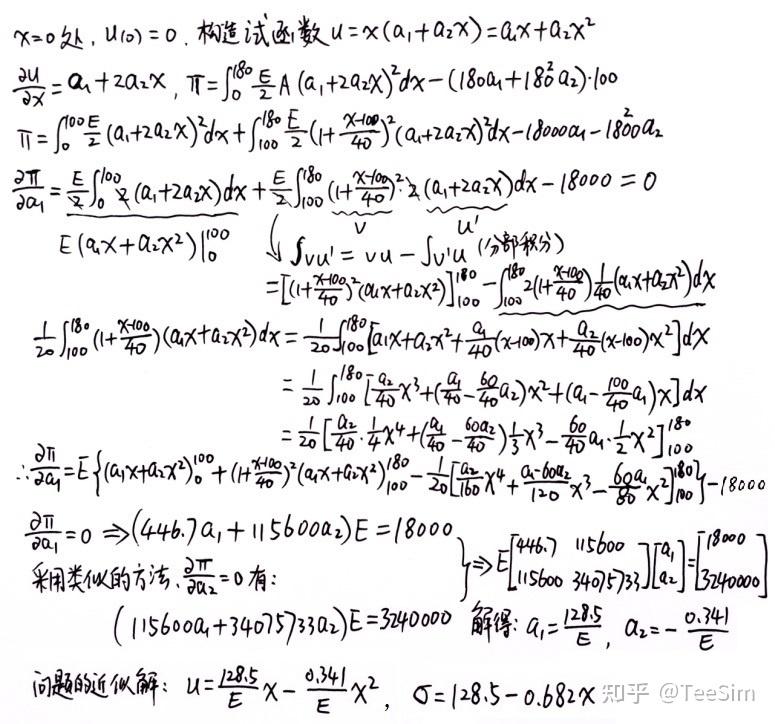 x=0处, U(0)=0, 构造试函数 u=x(a₁+a₂x)=a₁x+a₂x²
∂u/∂x=a₁+2a₂x, π=∫₀¹⁸⁰ E/2 A(a₁+2a₂x)²dx-(180a₁+180²a₂)·100
π=∫₀¹⁰⁰ E/2 (a₁+2a₂x)²dx+∫₁₀₀¹⁸⁰ E/2 (1+(x-100)/40)²(a₁+2a₂x)²dx-18000a₁-1800²a₂
∂π/∂a₁=E/2∫₀¹⁰⁰ 2(a₁+2a₂x)dx+E/2∫₁₀₀¹⁸⁰(1+(x-100)/40)²·2(a₁+2a₂x)dx-18000=0
E(a₁x+a₂x²)|₀¹⁰⁰ v u'
∫vu'=vu-∫v'u (分部积分)
=[(1+(x-100)/40)²(a₁x+a₂x²)]₁₀₀¹⁸⁰-∫₁₀₀¹⁸⁰2(1+(x-100)/40)1/40(a₁x+a₂x²)dx
1/20∫₁₀₀¹⁸⁰(1+(x-100)/40)(a₁x+a₂x²)dx=1/20∫₁₀₀¹⁸⁰[a₁x+a₂x²+a₁/40(x-100)x+a₂/40(x-100)x²]dx
=1/20∫₁₀₀¹⁸⁰[a₂/40x³+(a₁/40-60/40a₂)x²+(a₁-100/40a₁)x]dx
=1/20[a₂/40·1/4x⁴+(a₁/40-60a₂/40)1/3x³-60/40a₁·1/2x²]₁₀₀¹⁸⁰
∴∂π/∂a₁=E{(a₁x+a₂x²)₀¹⁰⁰+(1+(x-100)/40)²(a₁x+a₂x²)₁₀₀¹⁸⁰-1/20[a₂/160x⁴+(a₁-60a₂)/120x³-60a₁/80x²]₁₀₀¹⁸⁰}-18000
∂π/∂a₁=0⇒(446.7a₁+115600a₂)E=18000
采用类似的方法,∂π/∂a₂=0有:
(115600a₁+34075733a₂)E=3240000
}⇒E[446.7 115600
115600 34075733][a₁
a₂]=[18000
3240000]
解得:a₁=128.5/E, a₂=-0.341/E
问题的近似解: u=128.5/E x-0.341/E x², σ=128.5-0.682x
知乎 @TeeSim